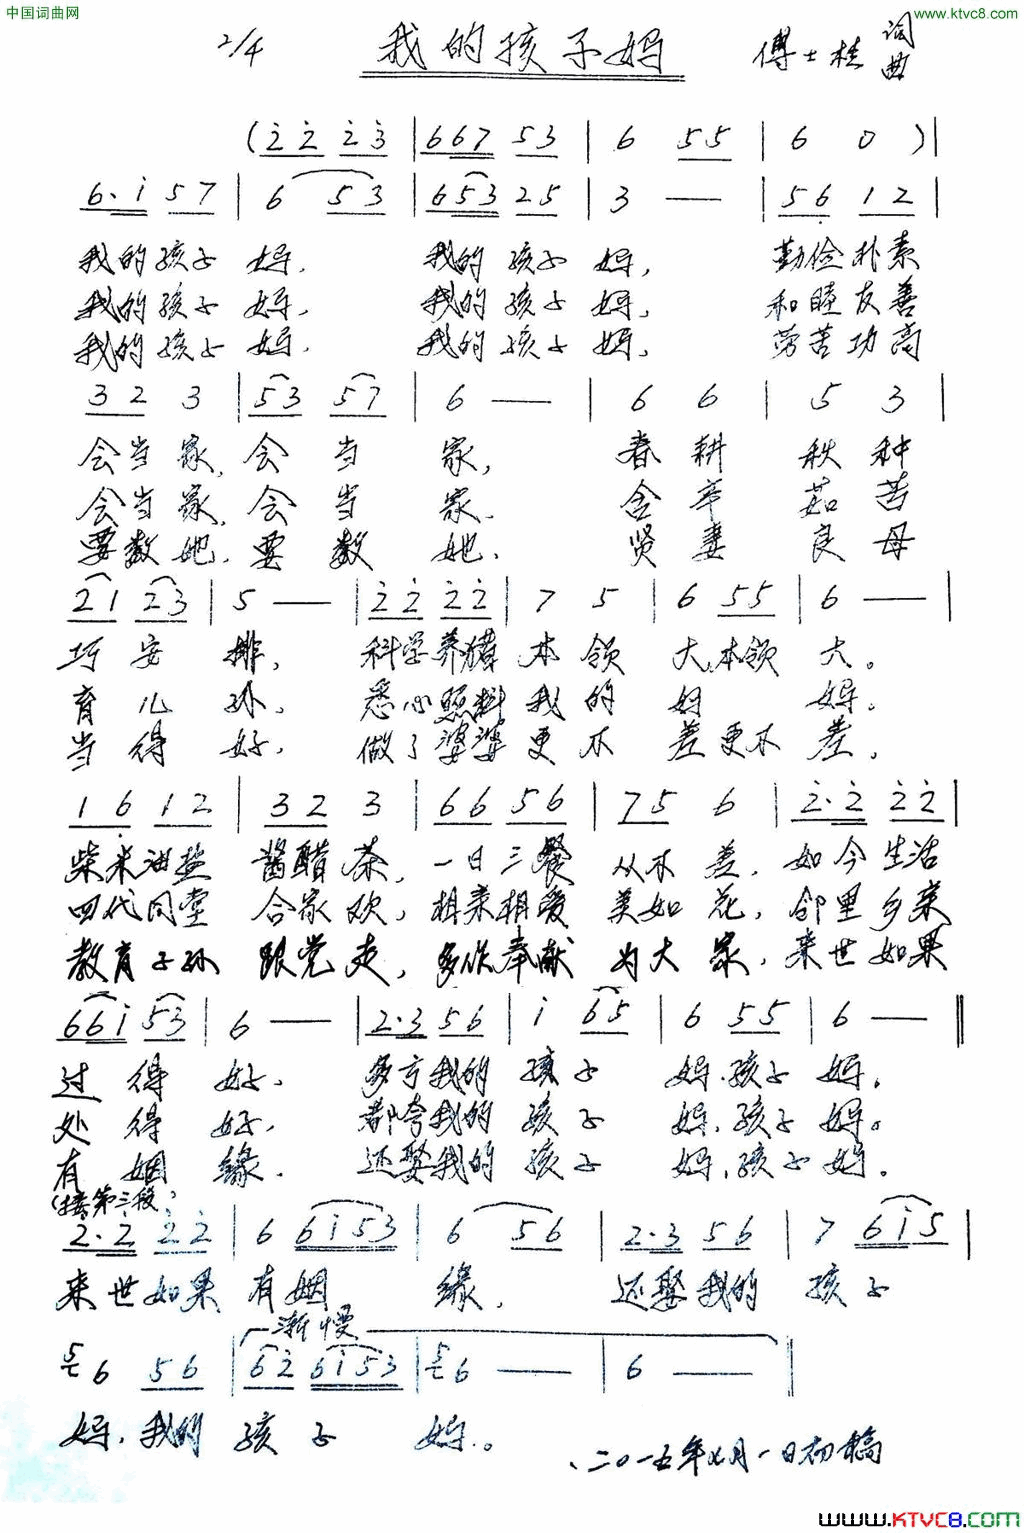 中国词曲网
www.ktvc8.com
2/4 我的孩子妈 傅士桂 词曲
(2̇ 2̇ 2̇ 3̇ | 6 6 7 5 3 | 6 5 5 | 6 0 ) |
6. i 5 7 | 6 5 3 | 6 5 3 2 5 | 3 — | 5 6 1 2 |
我的孩子 妈, 我的 孩子 妈, 勤俭朴素
我的孩子 妈, 我的 孩子 妈, 和睦友善
我的孩子 妈, 我的 孩子 妈, 劳苦功高
3 2 3 | 5 3 5 7 | 6 — | 6 6 | 5 3 |
会当家, 会当家, 春耕秋种
会当家, 会当家, 含辛茹苦
要数她, 要数她, 贤妻良母
2 1 2 3 | 5 — | 2̇ 2̇ 2̇ 2̇ | 7 5 | 6 5 5 | 6 — |
巧安排, 科学养猪本领大,本领大。
育儿孙, 悉心照料我的妈妈。
当得好, 做了婆婆更不差更不差。
1 6 1 2 | 3 2 3 | 6 6 5 6 | 7 5 6 | 2̇. 2̇ 2̇ 2̇ |
柴米油盐 酱醋茶, 一日三餐 从不差, 如今生活
四代同堂 合家欢, 相亲相爱 美如花, 邻里乡亲
教育子孙 跟党走, 多做奉献 为大家, 来世如果
6 6 i 5 3 | 6 — | 2. 3 5 6 | i 6 5 | 6 5 5 | 6 — ‖
过得好, 多亏我的孩子妈,孩子妈。
处得好, 都夸我的孩子妈,孩子妈。
有姻缘, 还娶我的孩子妈,孩子妈。
(接第三段)
2̇. 2̇ 2̇ 2̇ | 6 6 i 5 3 | 6 5 6 | 2. 3 5 6 | 7 6 i 5 |
来世如果有姻缘, 还娶我的孩子
渐慢
5 6 5 6 | 6 2̇ 6 i 5 3 | 5 6 — — | 6 — ‖
妈,我的孩子妈。
二〇一五年七月一日初稿
www.KTVC8.com